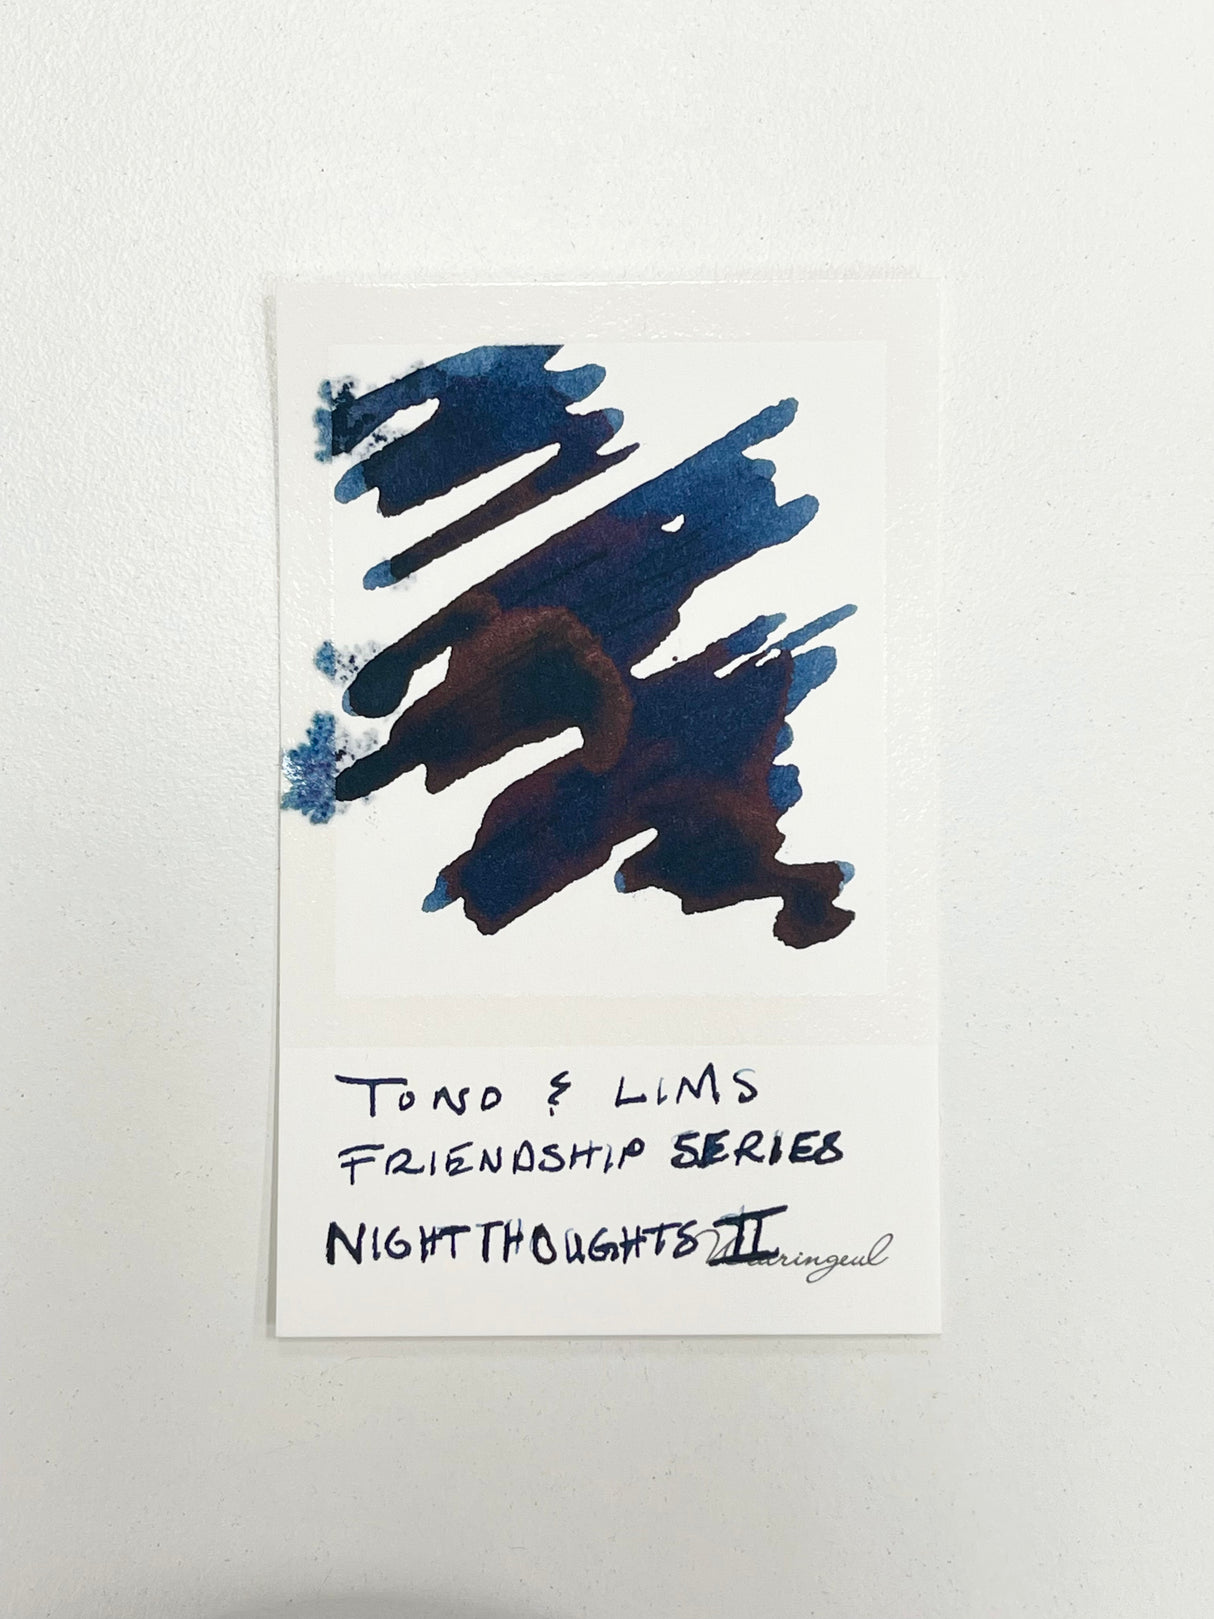 TONO & LIMS
FRIENDSHIP SERIES
NIGHTTHOUGHTS II
Wearingeul